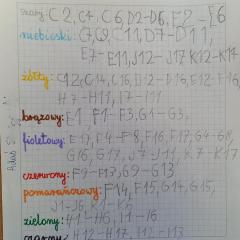 szary: C2, C4, C6, D2-D6, E2-E6
niebieski: C7, C9, C11, D7-D11,
E7-E11, J12-J17 K12-K14
żółty: C12, C14, C16, D12-D16, E12-F16,
H7-H11, I7-I11
brązowy: E1 F1-F3, G1-G3,
fioletowy: E17, F4-F8, F16, F17, G4-G8,
G16, G17, J7-J11, K7-K17
czerwony: F9-F13, G9-G13
pomarańczowy: F14, F15, G14, G15,
J1-J6 K1-K6
zielony: H1-H6, I1-I6
czarny: H12-H17, I12-I13